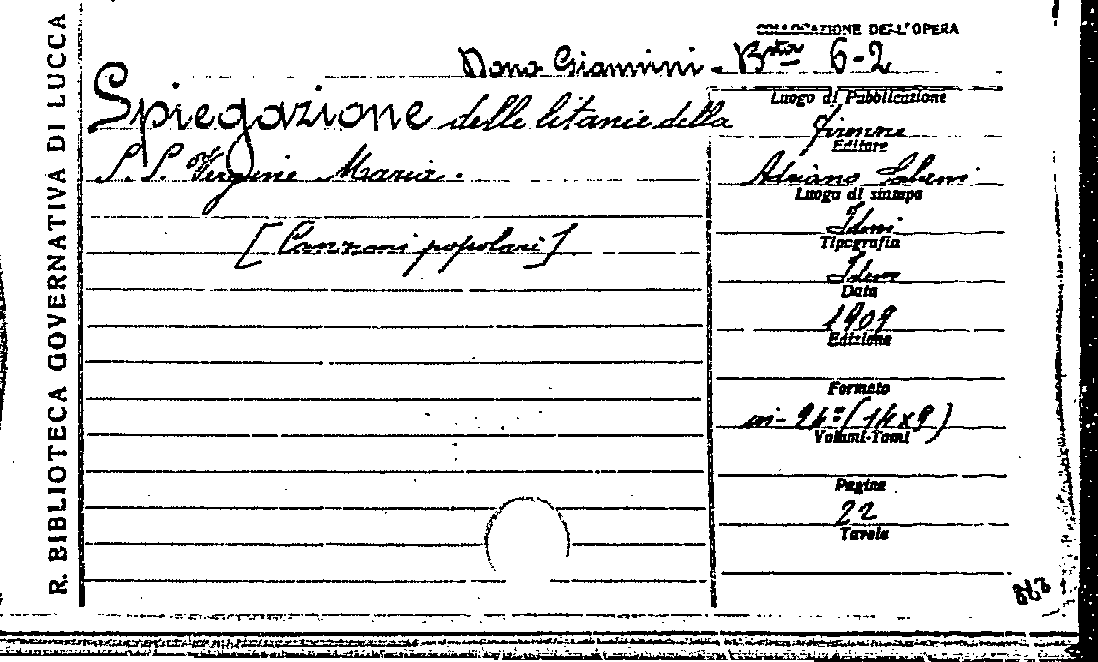 R. BIBLIOTECA GOVERNATIVA DI LUCCA
COLLOCAZIONE DELL'OPERA
Dono Giannini. Bta 6-2
Spiegazione delle litanie della
S.S. Vergine Maria.
[Canzoni popolari]
Luogo di Pubblicazione
Firenze
Editore
Adriano Salani
Luogo di stampa
Idem
Tipografia
Idem
Data
1909
Edizione
Formato
in-24º (14x9)
Volumi-Tomi
Pagine
22
Tavole